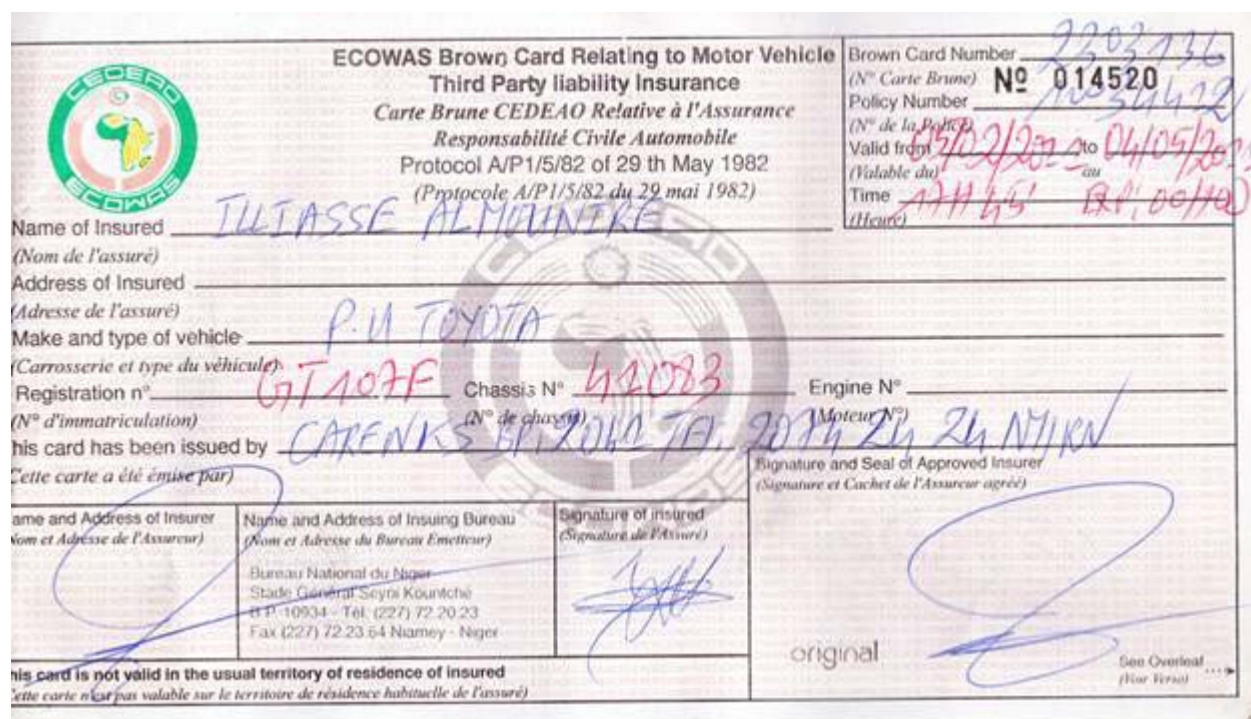 CEDEAO
ECOWAS
ECOWAS Brown Card Relating to Motor Vehicle
Third Party liability Insurance
Carte Brune CEDEAO Relative à l'Assurance
Responsabilité Civile Automobile
Protocol A/P1/5/82 of 29 th May 1982
(Protocole A/P1/5/82 du 29 mai 1982)
Brown Card Number 2203136
(N° Carte Brune) Nº 014520
Policy Number 54412
(N° de la Police)
Valid from 05/02/2021 to 04/05/202
(Valable du) au
Time 17H45 00H00
(Heure)
Name of Insured ILLIASSE ALMOUNIRE
(Nom de l'assuré)
Address of Insured
(Adresse de l'assuré)
Make and type of vehicle P.U TOYOTA
(Carrosserie et type du véhicule)
Registration n° GT107F Chassis N° 41083 Engine N°
(N° d'immatriculation) (N° de chassis) (Moteur N°)
his card has been issued by CARENKS BP. 2041 TEL 2074 24 24
Cette carte a été émise par)
Signature and Seal of Approved Insurer
(Signature et Cachet de l'Assureur agréé)
ame and Address of Insurer
Nom et Adresse de l'Assureur)
Name and Address of Insuing Bureau
(Nom et Adresse du Bureau Emetteur)
Bureau National du Niger
Stade Général Seyni Kountché
B.P. 10934 - Tél. (227) 72.20.23
Fax (227) 72.23.64 Niamey - Niger
Signature of insured
(Signature de l'Assuré)
original
See Overleaf
(Voir Verso)
his card is not valid in the usual territory of residence of insured
Cette carte n'est pas valable sur le territoire de résidence habituelle de l'assuré)